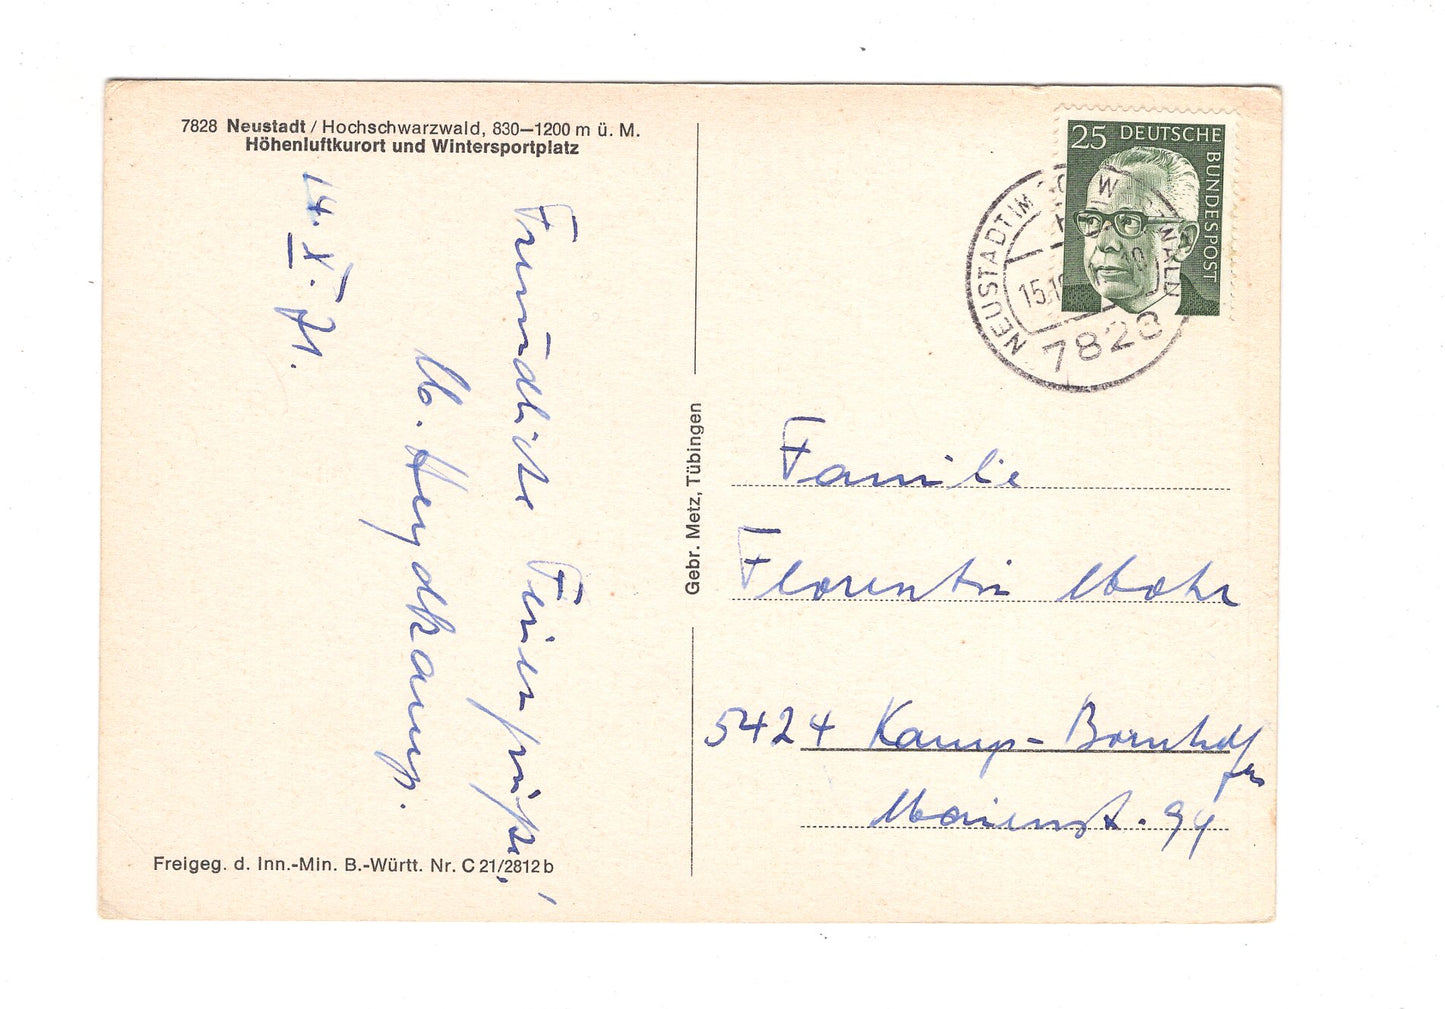 7828 Neustadt / Hochschwarzwald, 830—1200 m ü. M.
Höhenluftkurort und Wintersportplatz
14. X. 71.
Freundliche Feriengrüße!
M. Heydkamp.
Freigeg. d. Inn.-Min. B.-Württ. Nr. C 21/2812 b
Gebr. Metz, Tübingen
25 DEUTSCHE
BUNDESPOST
NEUSTADT IM SCHWARZWALD
15.10.
7828
Familie
Florentin Mohr
5424 Kamp-Bornhofen
Marienst. 94